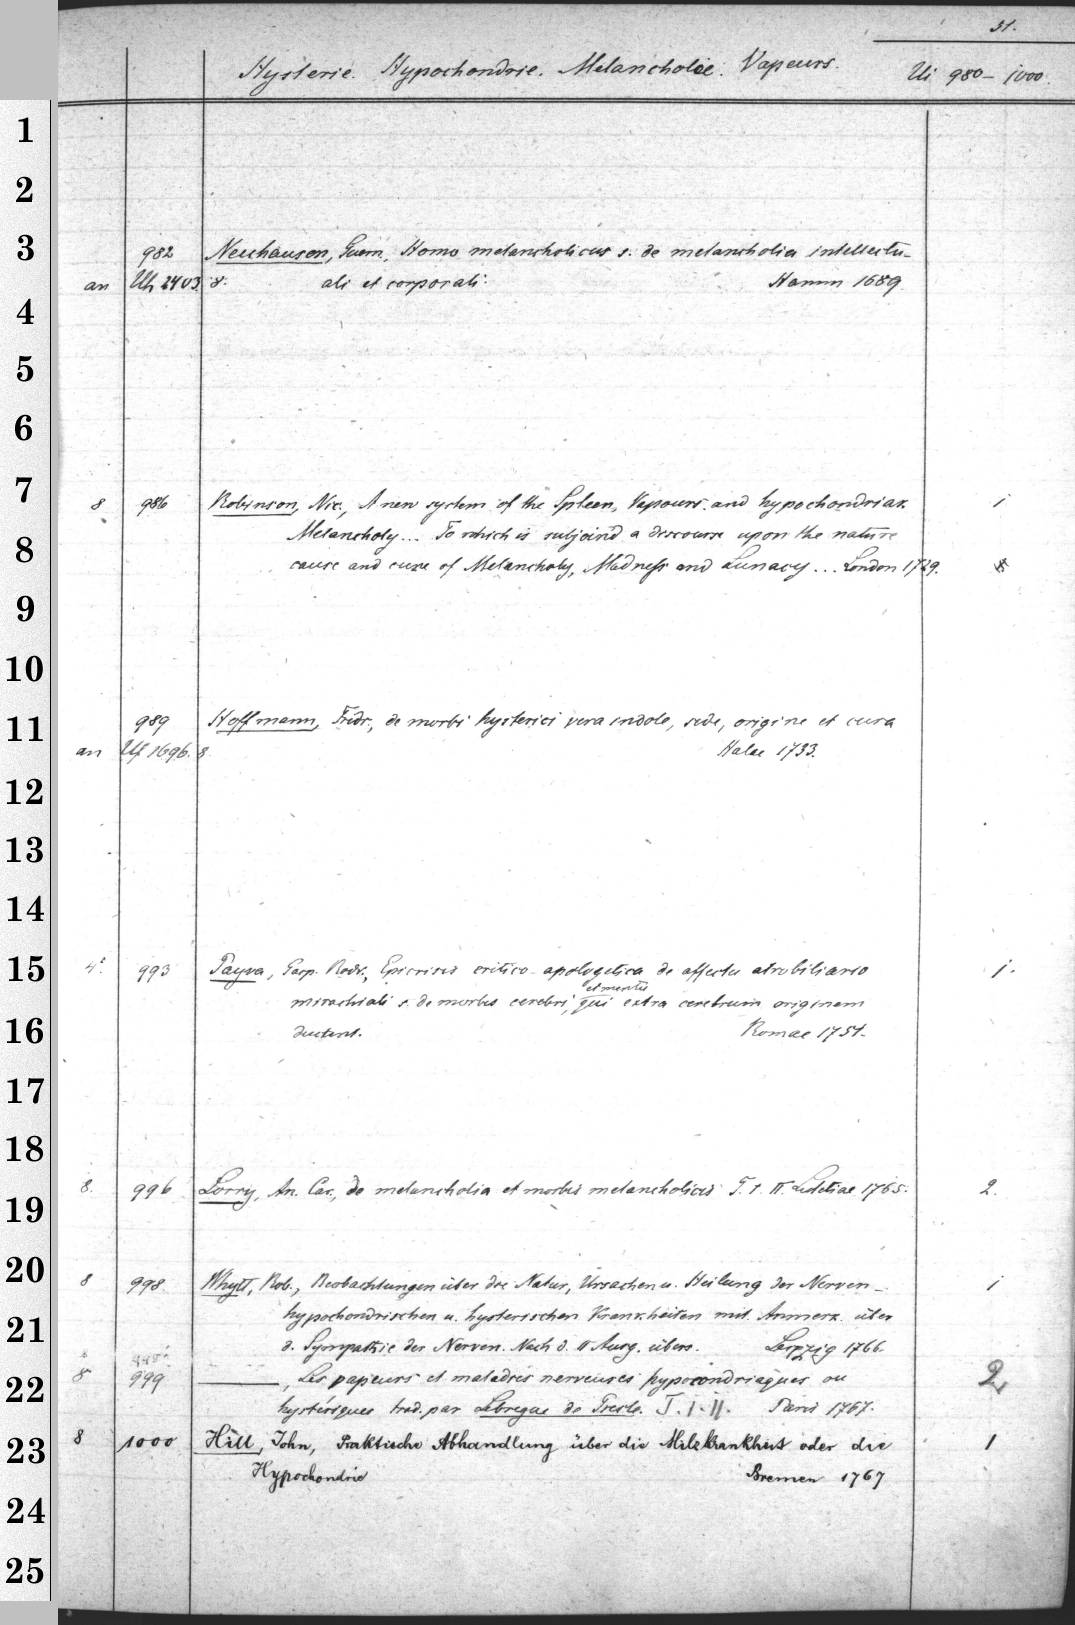 31.
Hysterie. Hypochondrie. Melancholie. Vapeurs. Ui 980 - 1000.
1
2
3
982 Neuhauson, Guern. Homo melancholicus s. de melancholia intellectu-
an Uh 2403. 8. ali et corporali. Hamm 1689.
4
5
6
7
8 986 Robinson, Nic., A new system of the Spleen, Vapours and hypochondriak. 1
Melancholy... To which is subjoind a discourse upon the nature
8
cause and cure of Melancholy, Madness and Lunacy... London 1729.
9
10
11
989 Hoffmann, Fridr., de morbi hysterici vera indole, sede, origine et cura
an Uf 1696. 8. Halae 1733.
12
13
14
15
4° 993 Payva, Gasp. Rodr., Epicrisis critico-apologetica de affectu atrobiliario 1.
et mentis
mirachiali s. de morbis cerebri, qui extra cerebrum originem
16
ducunt. Romae 1751.
17
18
8. 996 Lorry, An. Car., de melancholia et morbis melancholicis T. I. II. Lutetiae 1765. 2.
19
20
8 998 Whytt, Rob., Beobachtungen über die Natur, Ursachen u. Heilung der Nerven- 1
hypochondrischen u. hysterischen Krankheiten mit Anmerk. über
21
d. Sympathie der Nerven. Nach d. II Ausg. übers. Leipzig 1766.
22
8 999 ———, Les vapeurs et maladies nerveuses hypocondriaques ou 2
hystériques trad. par Lebregue de Presle. T. I. II. Paris 1767.
23
8 1000 Hill, John, Praktische Abhandlung über die Milzkrankheit oder die 1
Hypochondrie Bremen 1767
24
25